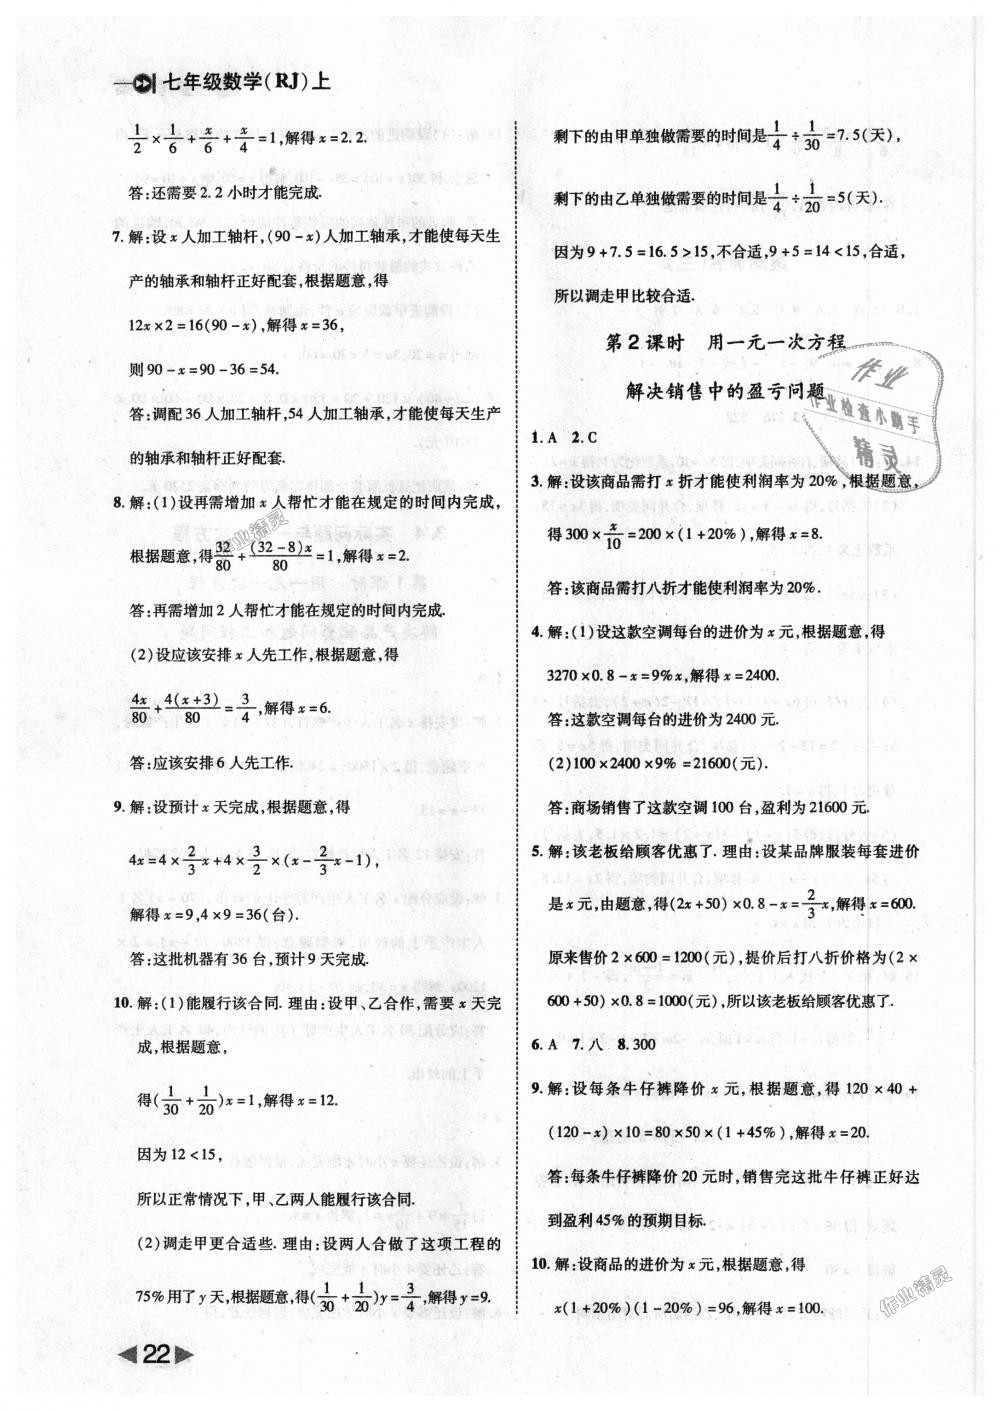 七年级数学(RJ)上
1/2×1/6+x/6+x/4=1,解得x=2.2.
答:还需要2.2小时才能完成.
7. 解:设x人加工轴杆,(90-x)人加工轴承,才能使每天生
产的轴承和轴杆正好配套,根据题意,得
12x×2=16(90-x),解得x=36,
则90-x=90-36=54.
答:调配36人加工轴杆,54人加工轴承,才能使每天生产
的轴承和轴杆正好配套.
8. 解:(1)设再需增加x人帮忙才能在规定的时间内完成,
根据题意,得32/80+(32-8)x/80=1,解得x=2.
答:再需增加2人帮忙才能在规定的时间内完成.
(2)设应该安排x人先工作,根据题意,得
4x/80+4(x+3)/80=3/4,解得x=6.
答:应该安排6人先工作.
9. 解:设预计x天完成,根据题意,得
4x=4×2/3x+4×3/2×(x-2/3x-1),
解得x=9,4×9=36(台).
答:这批机器有36台,预计9天完成.
10. 解:(1)能履行该合同. 理由:设甲、乙合作,需要x天完
成,根据题意,
得(1/30+1/20)x=1,解得x=12.
因为12<15,
所以正常情况下,甲、乙两人能履行该合同.
(2)调走甲更合适些. 理由:设两人合做了这项工程的
75%用了y天,根据题意,得(1/30+1/20)y=3/4,解得y=9.
剩下的由甲单独做需要的时间是1/4÷1/30=7.5(天),
剩下的由乙单独做需要的时间是1/4÷1/20=5(天).
因为9+7.5=16.5>15,不合适,9+5=14<15,合适,
所以调走甲比较合适.
第2课时 用一元一次方程
解决销售中的盈亏问题
1. A 2. C
3. 解:设该商品需打x折才能使利润率为20%,根据题意,
得300×x/10=200×(1+20%),解得x=8.
答:该商品需打八折才能使利润率为20%.
4. 解:(1)设这款空调每台的进价为x元,根据题意,得
3270×0.8-x=9%x,解得x=2400.
答:这款空调每台的进价为2400元.
(2)100×2400×9%=21600(元).
答:商场销售了这款空调100台,盈利为21600元.
5. 解:该老板给顾客优惠了. 理由:设某品牌服装每套进价
是x元,由题意,得(2x+50)×0.8-x=2/3x,解得x=600.
原来售价2×600=1200(元),提价后打八折价格为(2×
600+50)×0.8=1000(元),所以该老板给顾客优惠了.
6. A 7. 八 8. 300
9. 解:设每条牛仔裤降价x元,根据题意,得120×40+
(120-x)×10=80×50×(1+45%),解得x=20.
答:每条牛仔裤降价20元时,销售完这批牛仔裤正好达
到盈利45%的预期目标.
10. 解:设商品的进价为x元,根据题意,得
x(1+20%)(1-20%)=96,解得x=100.
22
作业
作业检查小帮手
精灵
作业精灵
作业精灵